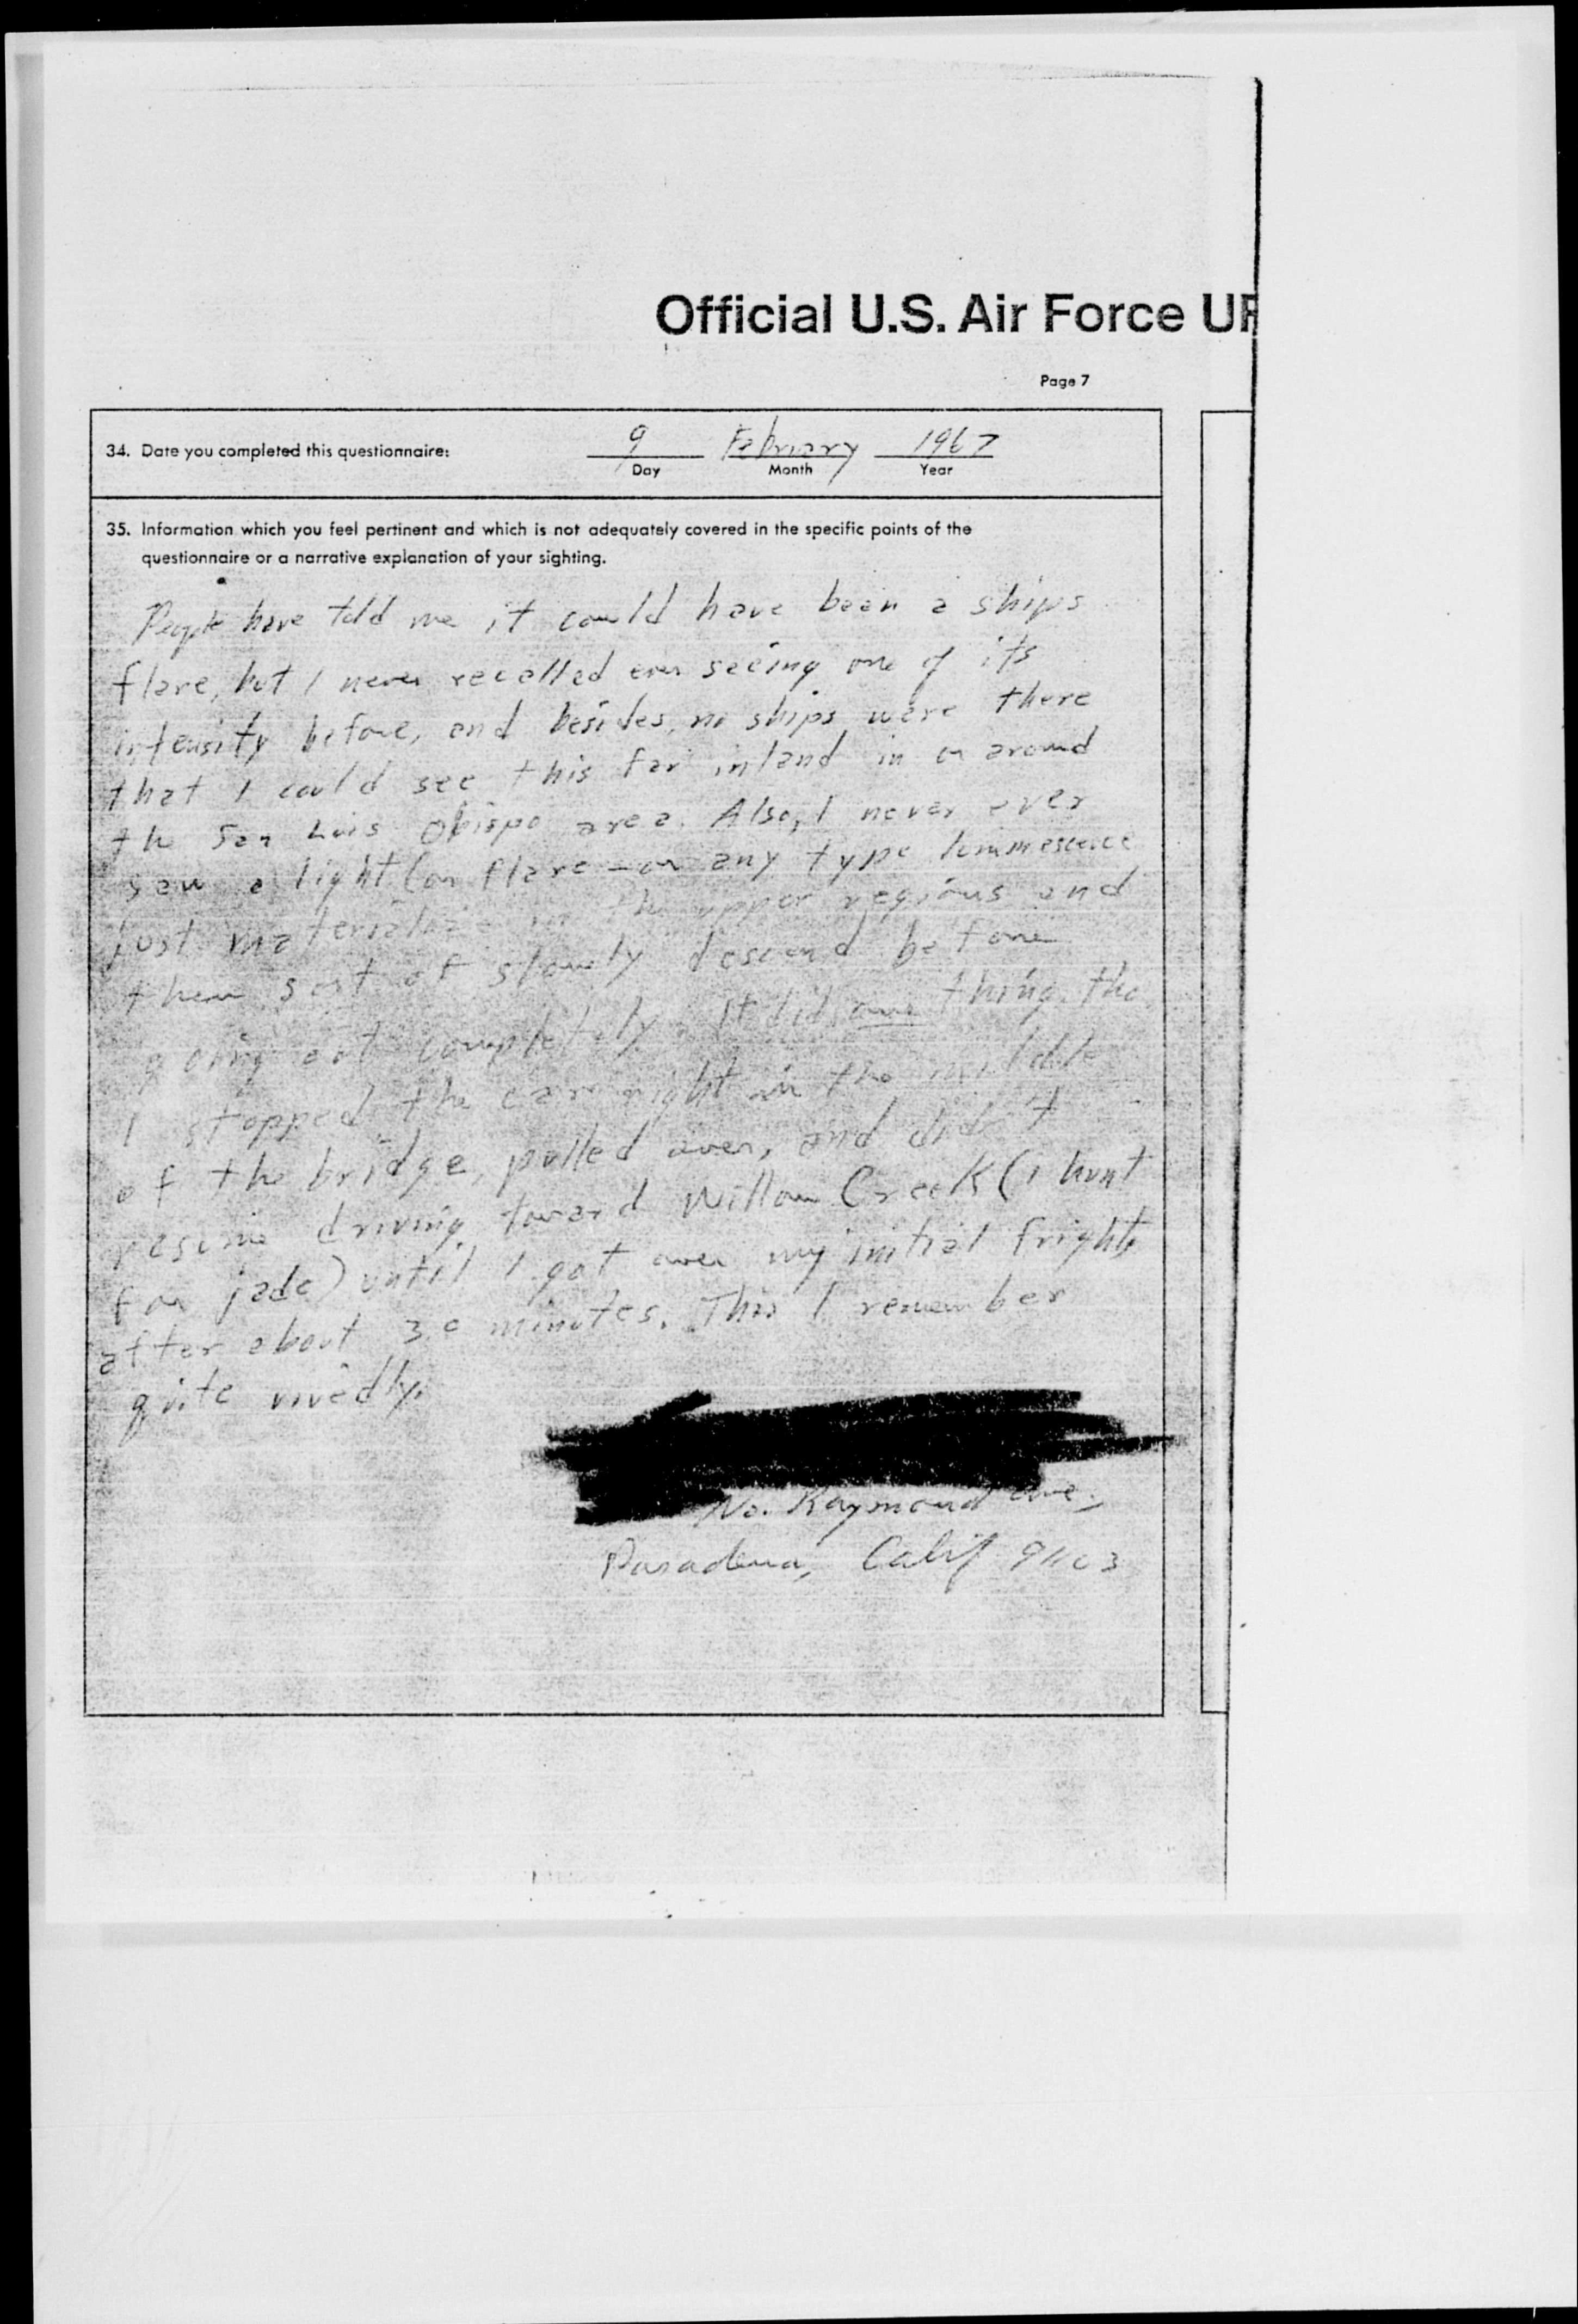 Official U.S. Air Force UF
Page 7
34. Date you completed this questionnaire:
9 February 1967
Day Month Year
35. Information which you feel pertinent and which is not adequately covered in the specific points of the
questionnaire or a narrative explanation of your sighting.
People have told me it could have been a ships
flare, but I never recalled ever seeing one of its
intensity before, and besides, no ships were there
that I could see this far inland in or around
the San Luis Obispo area. Also, I never ever
saw a light (or flare — or any type luminescence
just materialize in the upper regions and
then sort of slowly descend before
going out completely. It did one thing, tho,
I stopped the car right in the middle
of the bridge, pulled over, and didn't
resume driving toward Willow Creek (I hunt
for jade) until I got over my initial fright,
after about 30 minutes. This I remember
quite vividly.
No. Raymond Ave.,
Pasadena, Calif 91103